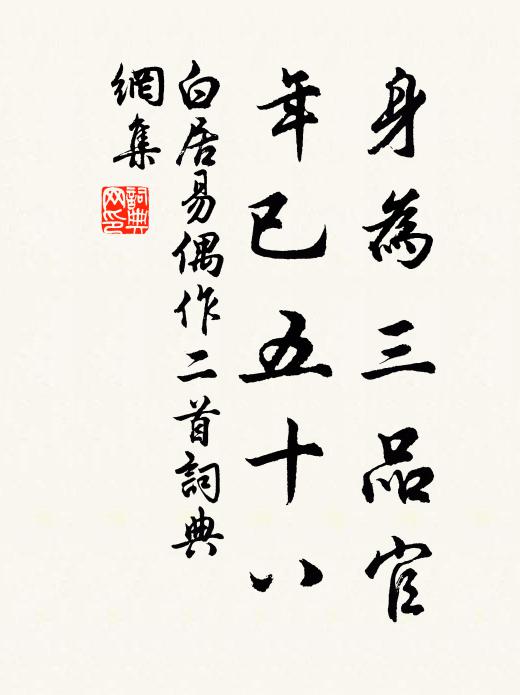 身為三品官
年已五十八
白居易偶作二首詞典
網集
詞典
网印